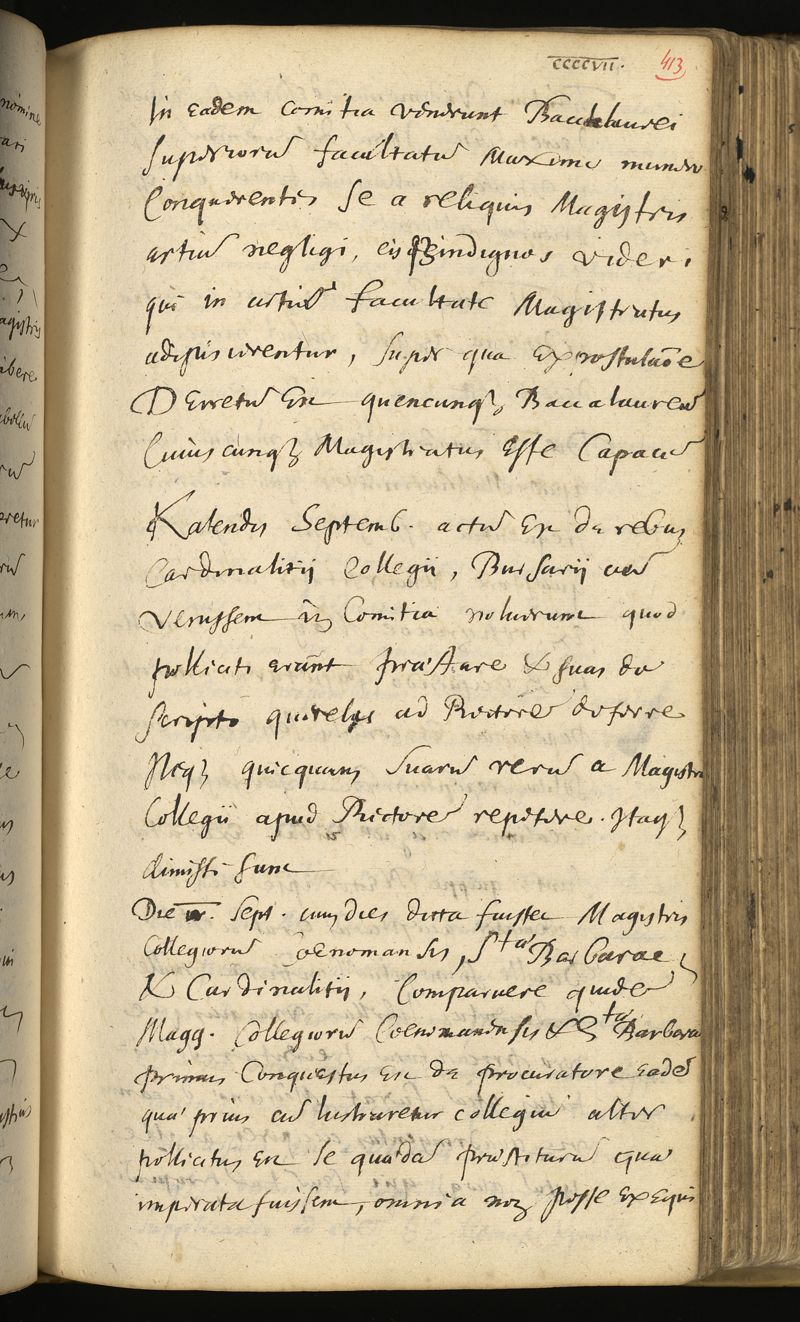 ccccvii. 413
In eadem comitia venerunt Baccalaurei
superiorū facultatū Maxime
Conquerentes se a reliquis Magistris
artiū negligi, eisqz indignos videri
qui in artiū facultate Magistratus
adipiscerentur, super qua expostulaōe
Decretū Est quencunqz Baccalaureū
Cuiuscunqz Magistratus Esse Capacē
Kalendis Septemb. actū Est de rebus
Cardinalitij Collegii, Bursarij cū
venissent in Comitia noluerunt quod
polliciti erant præstare & suas de
scripto querelas ad Rectorē deferre
Neqz quicquam suarū rerū a Magistro
Collegii apud Rectorē repetere. Itaqz
dimissi sunt
Die Sept. cum dies dicta fuisset Magistris
Collegiorū Coenomansis, Stæ Barbarae,
& Cardinalitij, Comparuere quidē
Magg. Collegiorū Coenomanensis & Stæ Barbara
primus Conquestus Est de procuratore Eadē
qua prius cū lustraretur collegiū alter
pollicitus Est se quædā præstiturū quæ
imperata fuissent, omnia non posse Exequi